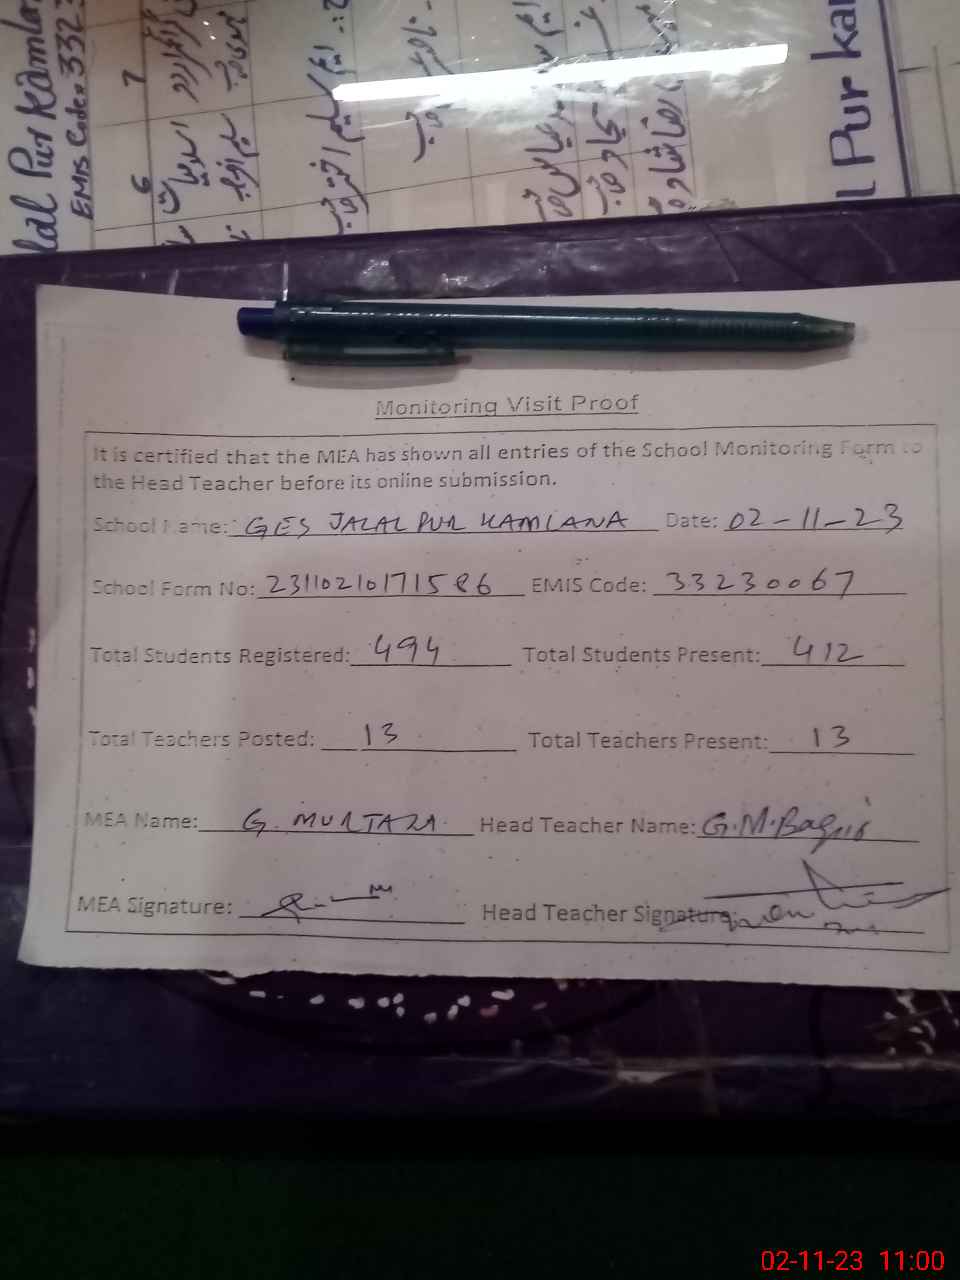 lal Pur Kamla
EMIS Code. 3323
6 7
l Pur Ka
Monitoring Visit Proof
It is certified that the MEA has shown all entries of the School Monitoring Form to
the Head Teacher before its online submission.
School Name: GES JALAL PUR KAMLANA Date: 02-11-23
School Form No: 23110210171586 EMIS Code: 33230067
Total Students Registered: 494 Total Students Present: 412
Total Teachers Posted: 13 Total Teachers Present: 13
MEA Name: G. MURTAZA Head Teacher Name: G.M.Baqir
MEA Signature: Head Teacher Signature:
02-11-23 11:00